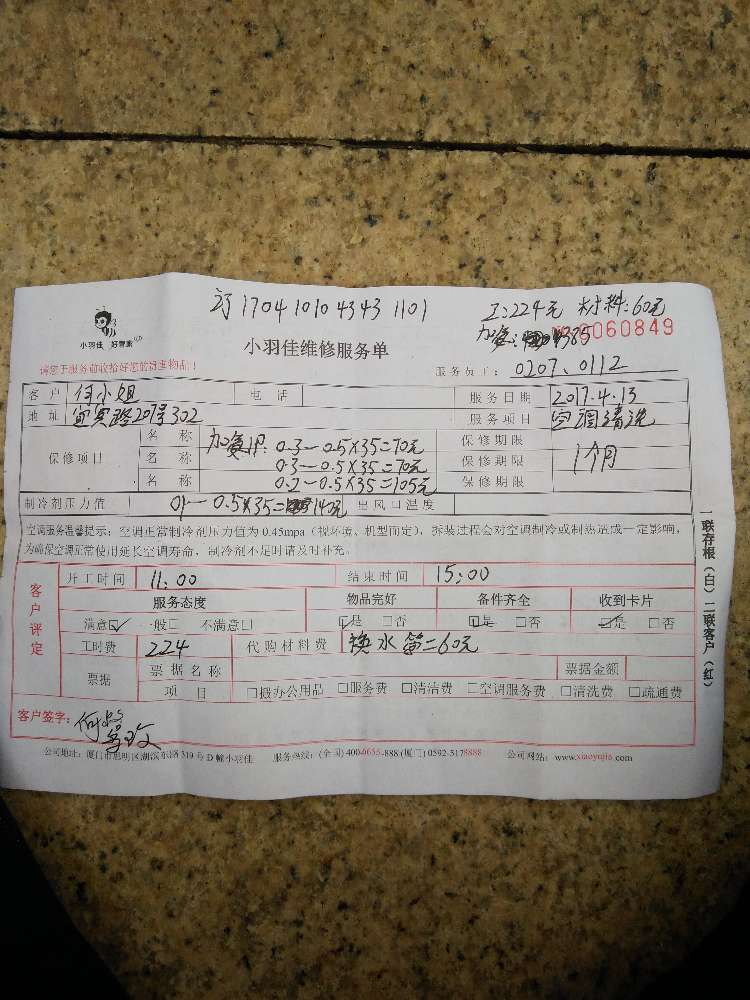 订 1704 1010 4343 1101
工:224元 材料:60元
小羽佳 好管家
加氨:385
0060849
小羽佳维修服务单
请您于服务前收拾好您的贵重物品!
服务员工: 0207、0112
客户 何小姐 电话 服务日期 2017.4.13
地址 宜宾路201号302 服务项目 空调清洗
保修项目 名称 0.3-0.5×35=70元 保修期限 1个月
名称 0.3-0.5×35=70元 保修期限
名称 0.2-0.5×35=105元 保修期限
制冷剂压力值 01-0.5×35=140元 出风口温度
空调服务温馨提示:空调正常制冷剂压力值为0.45mpa(视环境、机型而定),拆装过程会对空调制冷或制热造成一定影响,
为确保空调正常使用延长空调寿命,制冷剂不足时请及时补充。
客户评定
开工时间 11:00 结束时间 15:00
服务态度 物品完好 备件齐全 收到卡片
满意☑ 一般□ 不满意□ ☑是 □否 ☑是 □否 ☑是 □否
工时费 224 代购材料费 换水管二60元
票据 票据名称 票据金额
项目 □搬办公用品 □服务费 □清洁费 □空调服务费 □清洗费 □疏通费
客户签字:
公司地址:厦门市思明区湖滨东路319号D幢小羽佳 服务热线:(全国)400-0655-888(厦门)0592-5178888 公司网站:www.xiaoyujia.com
一联存根(白)二联客户(红)